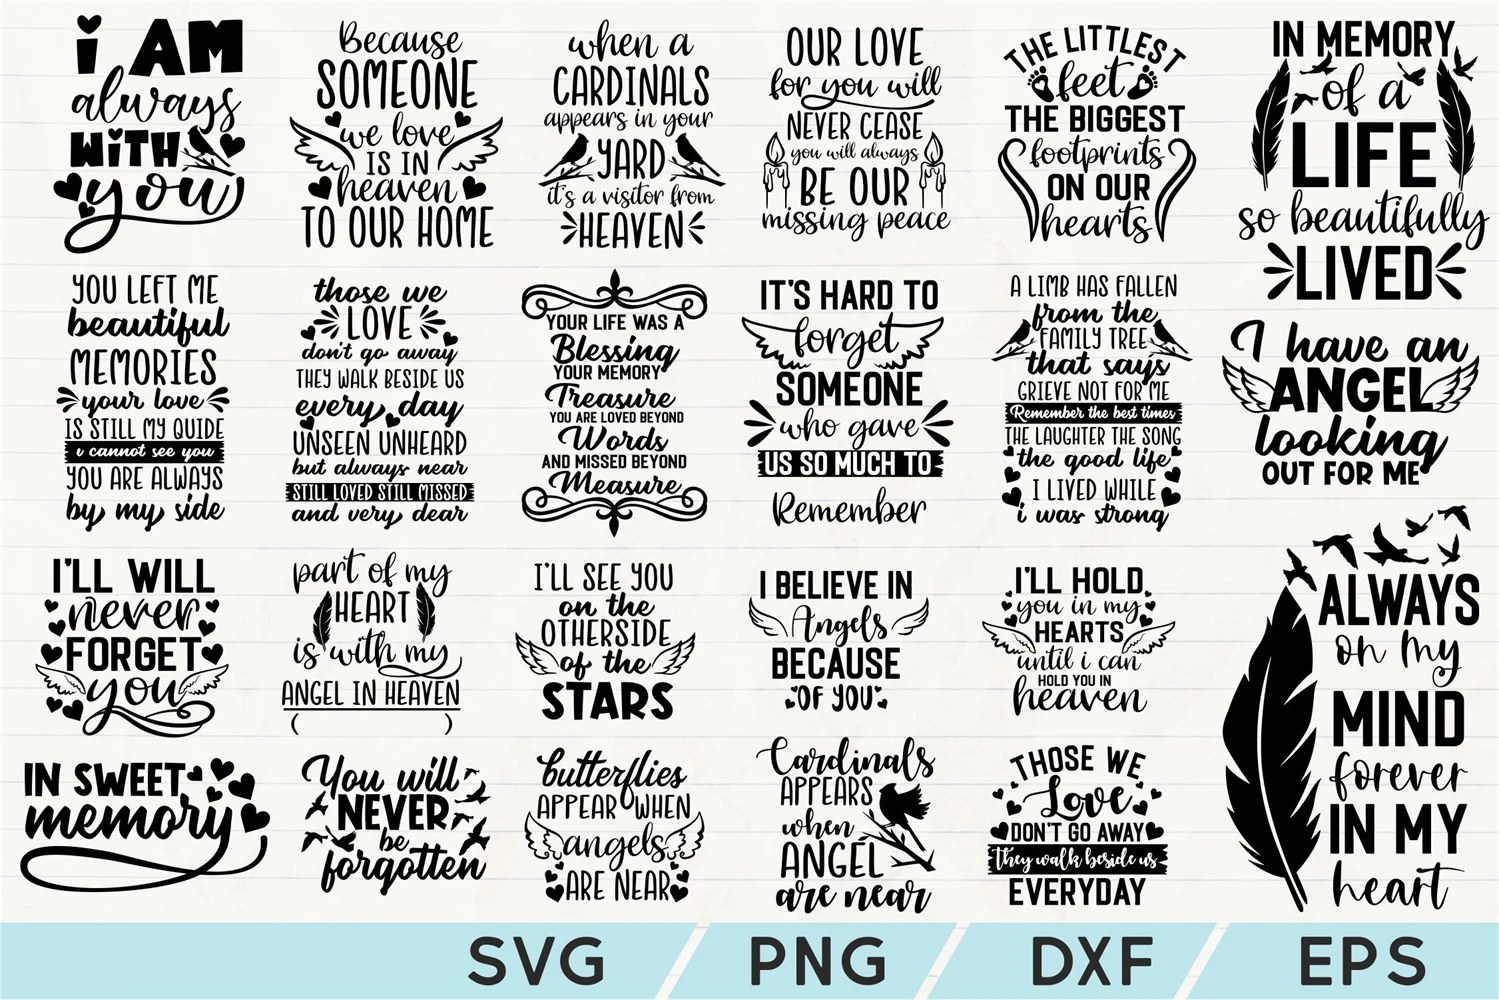 i AM
always
WiTH
you
Because
SOMEONE
we love
IS IN
heaven
TO OUR HOME
when a
CARDINALS
appears in your
YARD
it's a visitor from
HEAVEN
OUR LOVE
for you will
NEVER CEASE
you will always
BE OUR
missing peace
THE LITTLEST
feet
THE BIGGEST
footprints
ON OUR
hearts
IN MEMORY
of a
LIFE
so beautifully
LIVED
YOU LEFT ME
beautiful
MEMORIES
your love
IS STILL MY QUIDE
i cannot see you
YOU ARE ALWAYS
by my side
those we
LOVE
don't go away
THEY WALK BESIDE US
every day
UNSEEN UNHEARD
but always near
STILL LOVED STILL MISSED
and very dear
YOUR LIFE WAS A
Blessing
YOUR MEMORY
Treasure
YOU ARE LOVED BEYOND
Words
AND MISSED BEYOND
Measure
IT'S HARD TO
forget
SOMEONE
who gave
US SO MUCH TO
Remember
A LIMB HAS FALLEN
from the
FAMILY TREE
that says
GRIEVE NOT FOR ME
Remember the best times
THE LAUGHTER THE SONG
the good life
I LIVED WHILE
i was strong
I have an
ANGEL
looking
OUT FOR ME
I'LL WILL
never
FORGET
you
part of my
HEART
is with my
ANGEL IN HEAVEN
( )
I'LL SEE YOU
on the
OTHERSIDE
of the
STARS
I BELIEVE IN
Angels
BECAUSE
OF YOU
I'LL HOLD
you in my
HEARTS
until i can
HOLD YOU IN
heaven
ALWAYS
on my
MIND
forever
IN MY
heart
IN SWEET
memory
You will
NEVER
be
forgotten
butterflies
APPEAR WHEN
angels
ARE NEAR
Cardinals
APPEARS
when
ANGEL
are near
THOSE WE
Love
DON'T GO AWAY
They walk beside us
EVERYDAY
SVG
PNG
DXF
EPS